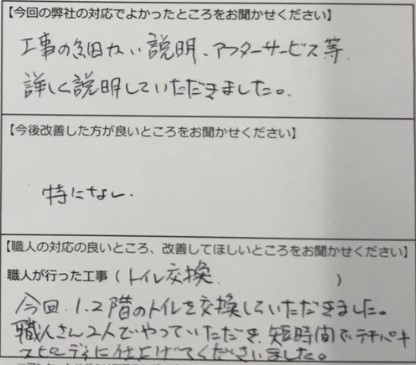 【今回の弊社の対応でよかったところをお聞かせください】
工事の細かい説明、アフターサービス等
詳しく説明していただきました。
【今後改善した方が良いところをお聞かせください】
特になし。
【職人の対応の良いところ、改善してほしいところをお聞かせください】
職人が行った工事（トイレ交換　　　）
今回、1.2階のトイレを交換していただきました。
職人さん2人でやっていただき、短時間でテキパキ
スピーディに仕上げてくださいました。